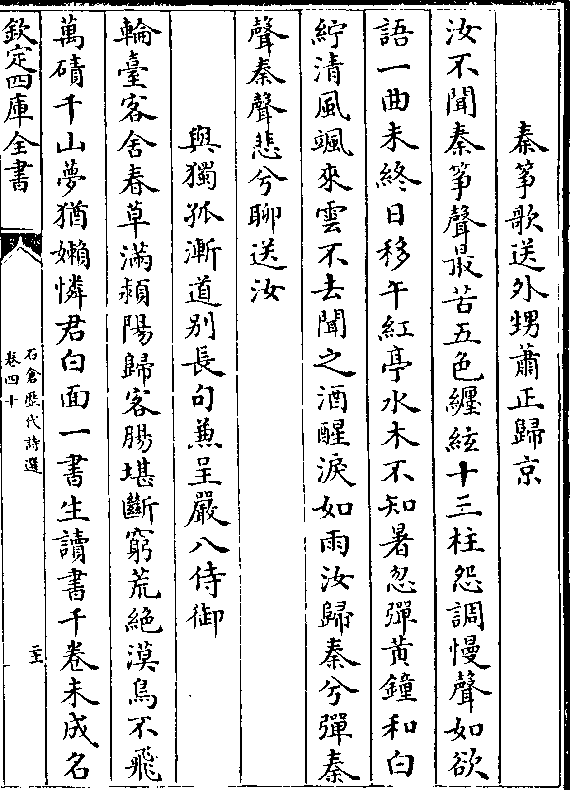 秦箏歌送外甥蕭正歸京
汝不聞秦箏聲最苦五色纏絃十三柱怨調慢聲如欲
語一曲未終日移午紅亭水木不知暑忽彈黃鐘和白
紵清風颯來雲不去聞之酒醒淚如雨汝歸秦兮彈秦
聲秦聲悲兮聊送汝
與獨孤漸道别長句兼呈嚴八侍御
輪臺客舍春草滿潁陽歸客腸堪斷窮荒絶漠鳥不飛
萬磧千山夢猶嬾憐君白面一書生讀書千卷未成名
欽定四庫全書
石倉歷代詩選
卷四十
二十五